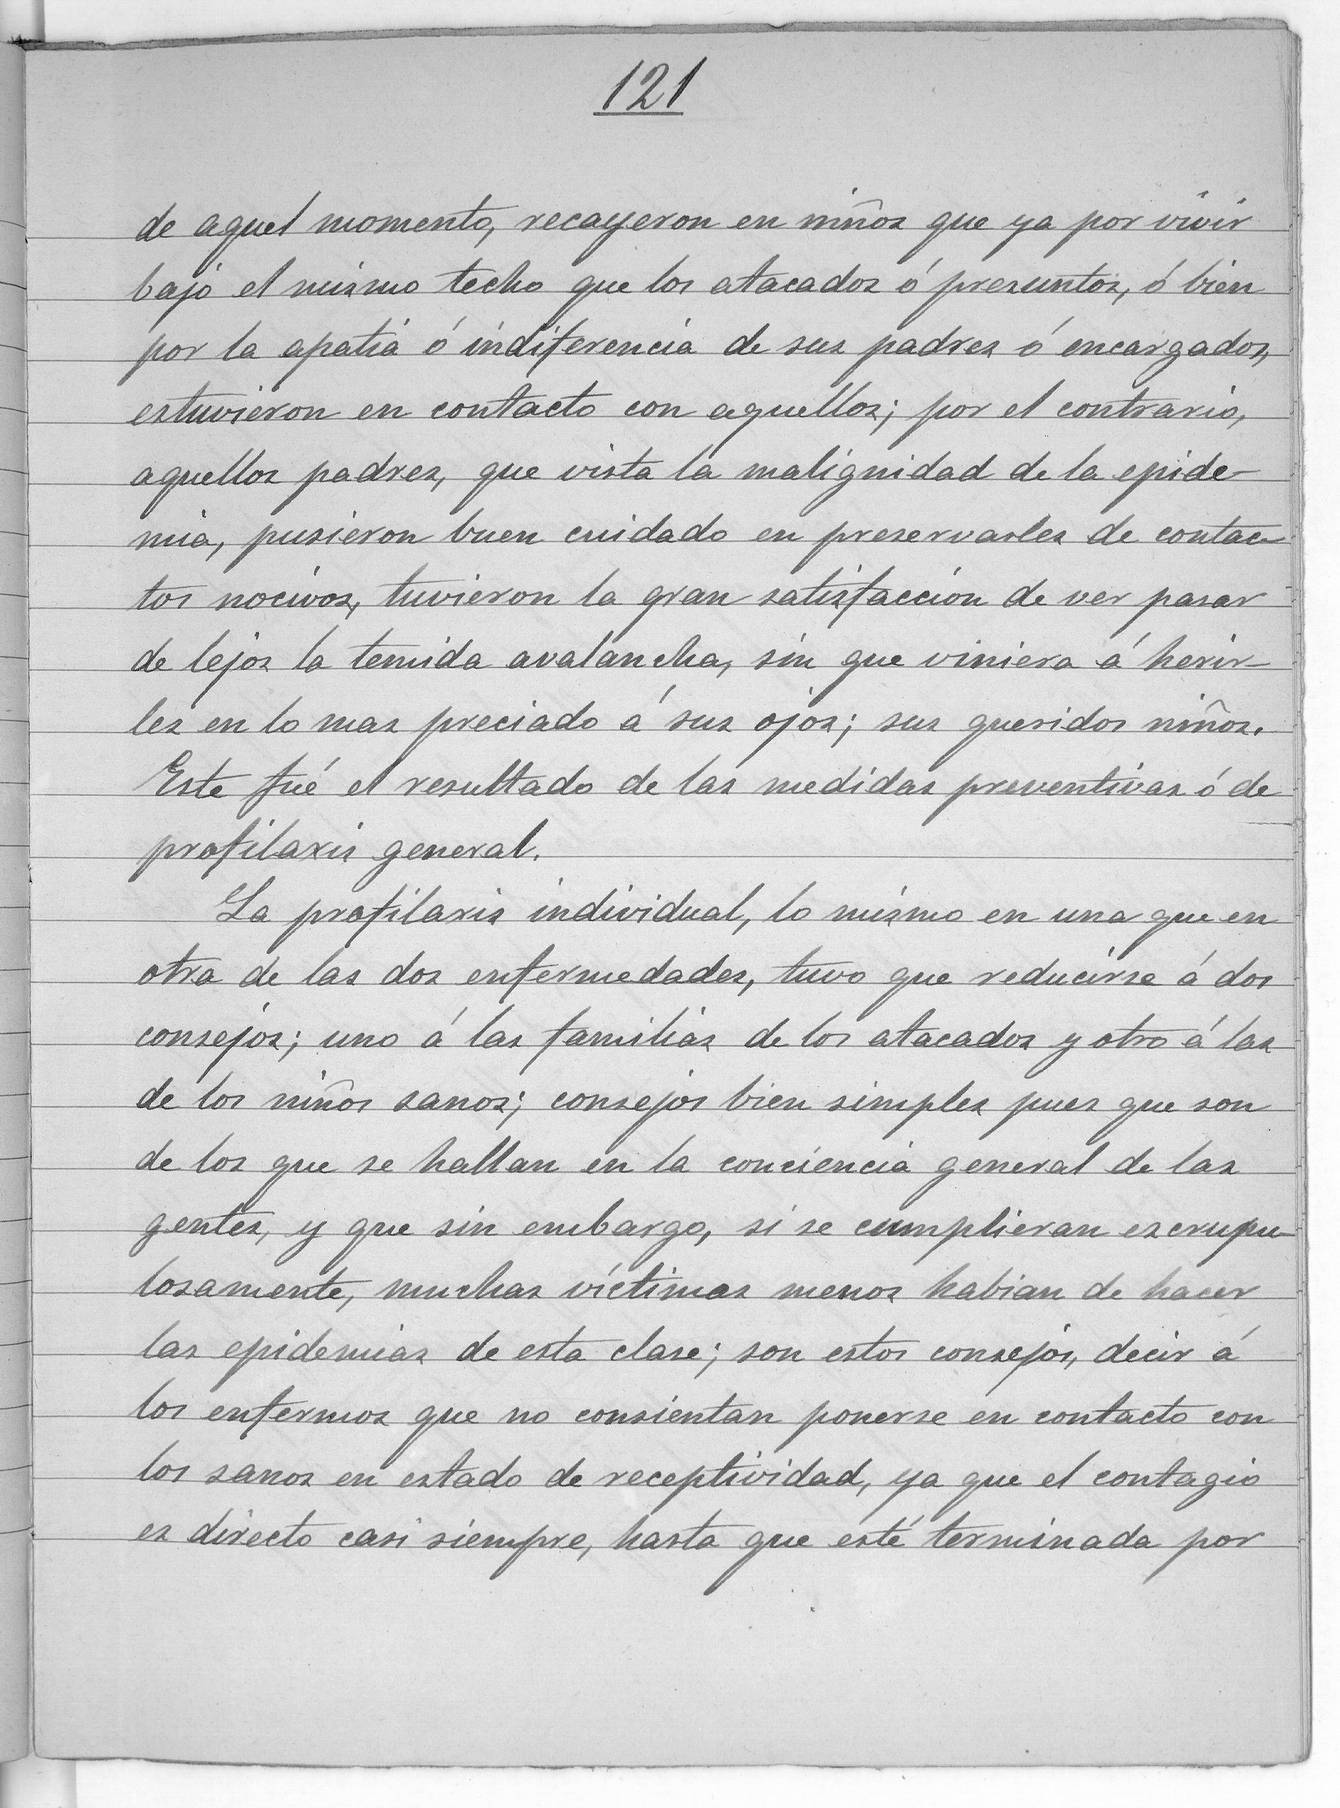 121
de aquel momento, recayeron en niños que ya por vivir
bajo el mismo techo que los atacados ó presuntos, ó bien
por la apatia ó indiferencia de sus padres ó encargados,
estuvieron en contacto con aquellos; por el contrario,
aquellos padres, que vista la malignidad de la epide-
mia, pusieron buen cuidado en preservarles de contac-
tos nocivos, tuvieron la gran satisfaccion de ver pasar
de lejos la temida avalancha, sin que viniera á herir-
les en lo mas preciado á sus ojos; sus queridos niños.
Este fué el resultado de las medidas preventivas ó de
profilaxis general.
La profilaxis individual, lo mismo en una que en
otra de las dos enfermedades, tuvo que reducirse á dos
consejos; uno á las familias de los atacados y otro á las
de los niños sanos; consejos bien simples pues que son
de los que se hallan en la conciencia general de las
gentes, y que sin embargo, si se cumplieran escrupu-
losamente, muchas víctimas menos habian de hacer
las epidemias de esta clase; son estos consejos, decir á
los enfermos que no consientan ponerse en contacto con
los sanos en estado de receptividad, ya que el contagio
es directo casi siempre, hasta que esté terminada por